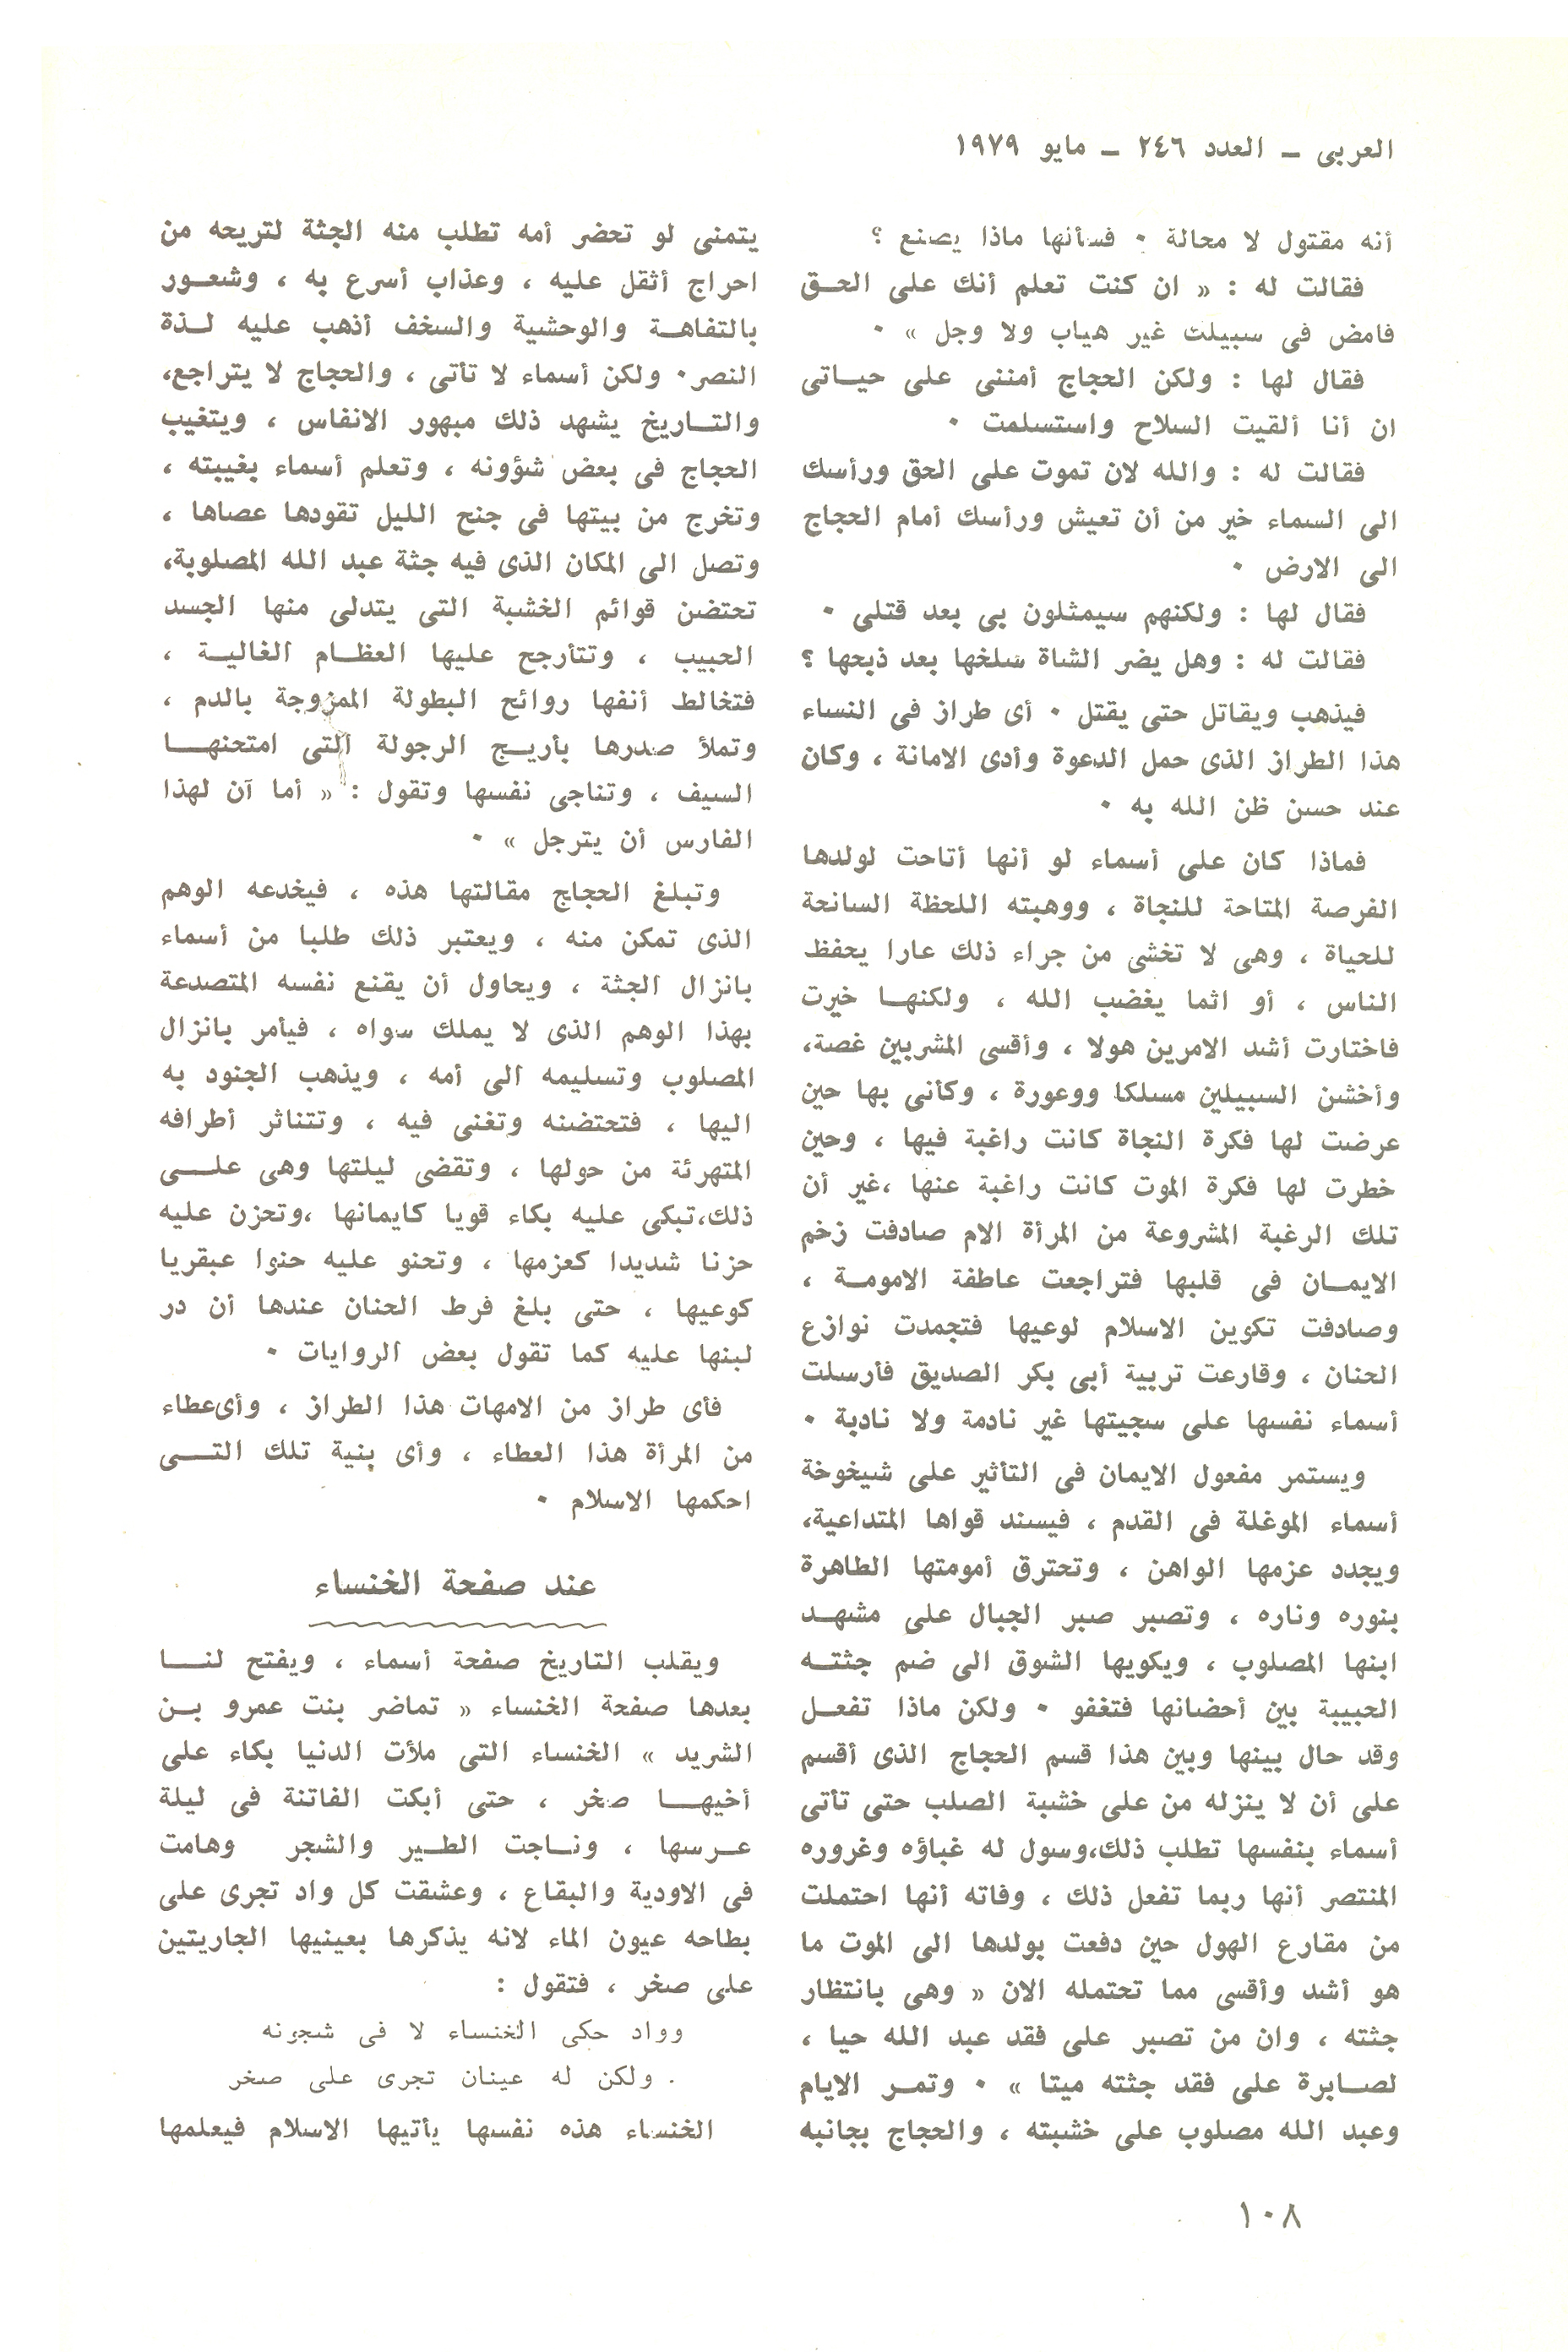 العربى ـ العدد ٢٤٦ ـ مايو ١٩٧٩
أنه مقتول لا محالة ٠ فسألها ماذا يصنع ؟
فقالت له : « ان كنت تعلم أنك على الحـق
فامض فى سبيلك غير هياب ولا وجل » ٠
فقال لها : ولكن الحجاج أمننى على حيـاتى
ان أنا ألقيت السلاح واستسلمت ٠
فقالت له : والله لان تموت على الحق ورأسك
الى السماء خير من أن تعيش ورأسك أمام الحجاج
الى الارض ٠
فقال لها : ولكنهم سيمثلون بى بعد قتلى ٠
فقالت له : وهل يضر الشاة سلخها بعد ذبحها ؟
فيذهب ويقاتل حتى يقتل ٠ أى طراز فى النساء
هذا الطراز الذى حمل الدعوة وأدى الامانة ، وكان
عند حسن ظن الله به ٠
فماذا كان على أسماء لو أنها أتاحت لولدها
الفرصة المتاحة للنجاة ، ووهبته اللحظة السانحة
للحياة ، وهى لا تخشى من جراء ذلك عارا يحفظ
الناس ، أو اثما يغضب الله ، ولكنهـا خيرت
فاختارت أشد الامرين هولا ، وأقسى المشربين غصة،
وأخشن السبيلين مسلكا ووعورة ، وكأنى بها حين
عرضت لها فكرة النجاة كانت راغبة فيها ، وحين
خطرت لها فكرة الموت كانت راغبة عنها ،غير أن
تلك الرغبة المشروعة من المرأة الام صادفت زخم
الايمـان فى قلبها فتراجعت عاطفة الامومـة ،
وصادفت تكوين الاسلام لوعيها فتجمدت نوازع
الحنان ، وقارعت تربية أبى بكر الصديق فأرسلت
أسماء نفسها على سجيتها غير نادمة ولا نادبة ٠
ويستمر مفعول الايمان فى التأثير على شيخوخة
أسماء الموغلة فى القدم ، فيسند قواها المتداعية،
ويجدد عزمها الواهن ، وتحترق أمومتها الطاهرة
بنوره وناره ، وتصبر صبر الجبال على مشهـد
ابنها المصلوب ، ويكويها الشوق الى ضم جثتـه
الحبيبة بين أحضانها فتغفو ٠ ولكن ماذا تفعـل
وقد حال بينها وبين هذا قسم الحجاج الذى أقسم
على أن لا ينزله من على خشبة الصلب حتى تأتى
أسماء بنفسها تطلب ذلك،وسول له غباؤه وغروره
المنتصر أنها ربما تفعل ذلك ، وفاته أنها احتملت
من مقارع الهول حين دفعت بولدها الى الموت ما
هو أشد وأقسى مما تحتمله الان « وهى بانتظار
جثته ، وان من تصبر على فقد عبد الله حيا ،
لصـابرة على فقد جثته ميتا » ٠ وتمـر الايام
وعبد الله مصلوب على خشبته ، والحجاج بجانبه
يتمنى لو تحضر أمه تطلب منه الجثة لتريحه من
احراج أثقل عليه ، وعذاب أسرع به ، وشعـور
بالتفاهـة والوحشية والسخف أذهب عليه لـذة
النصر٠ ولكن أسماء لا تأتى ، والحجاج لا يتراجع،
والتـاريخ يشهد ذلك مبهور الانفاس ، ويتغيب
الحجاج فى بعض شؤونه ، وتعلم أسماء بغيبته ،
وتخرج من بيتها فى جنح الليل تقودها عصاها ،
وتصل الى المكان الذى فيه جثة عبد الله المصلوبة،
تحتضن قوائم الخشبة التى يتدلى منها الجسد
الحبيب ، وتتأرجح عليها العظـام الغاليـة ،
فتخالط أنفها روائح البطولة الممزوجة بالدم ،
وتملأ صدرها بأريـج الرجولة التى امتحنهـا
السيف ، وتناجى نفسها وتقول : « أما آن لهذا
الفارس أن يترجل » ٠
وتبلغ الحجاج مقالتها هذه ، فيخدعه الوهم
الذى تمكن منه ، ويعتبر ذلك طلبا من أسماء
بانزال الجثة ، ويحاول أن يقنع نفسه المتصدعة
بهذا الوهم الذى لا يملك سواه ، فيأمر بانزال
المصلوب وتسليمه الى أمه ، ويذهب الجنود به
اليها ، فتحتضنه وتغنى فيه ، وتتناثر أطرافه
المتهرئة من حولها ، وتقضى ليلتها وهى علـى
ذلك،تبكى عليه بكاء قويا كايمانها ،وتحزن عليه
حزنا شديدا كعزمها ، وتحنو عليه حنوا عبقريا
كوعيها ، حتى بلغ فرط الحنان عندها أن در
لبنها عليه كما تقول بعض الروايات ٠
فأى طراز من الامهات هذا الطراز ، وأىعطاء
من المرأة هذا العطاء ، وأى بنية تلك التـى
احكمها الاسلام ٠
عند صفحة الخنساء
ويقلب التاريخ صفحة أسماء ، ويفتح لنـا
بعدها صفحة الخنساء « تماضر بنت عمرو بـن
الشريد » الخنساء التى ملأت الدنيا بكاء على
أخيهـا صخر ، حتى أبكت الفاتنة فى ليلة
عـرسها ، ونـاجت الطـير والشجر وهامت
فى الاودية والبقاع ، وعشقت كل واد تجرى على
بطاحه عيون الماء لانه يذكرها بعينيها الجاريتين
على صخر ، فتقول :
وواد حكى الخنساء لا فى شجونه
ولكن له عينان تجرى على صخر
الخنساء هذه نفسها يأتيها الاسلام فيعلمها
١٠٨